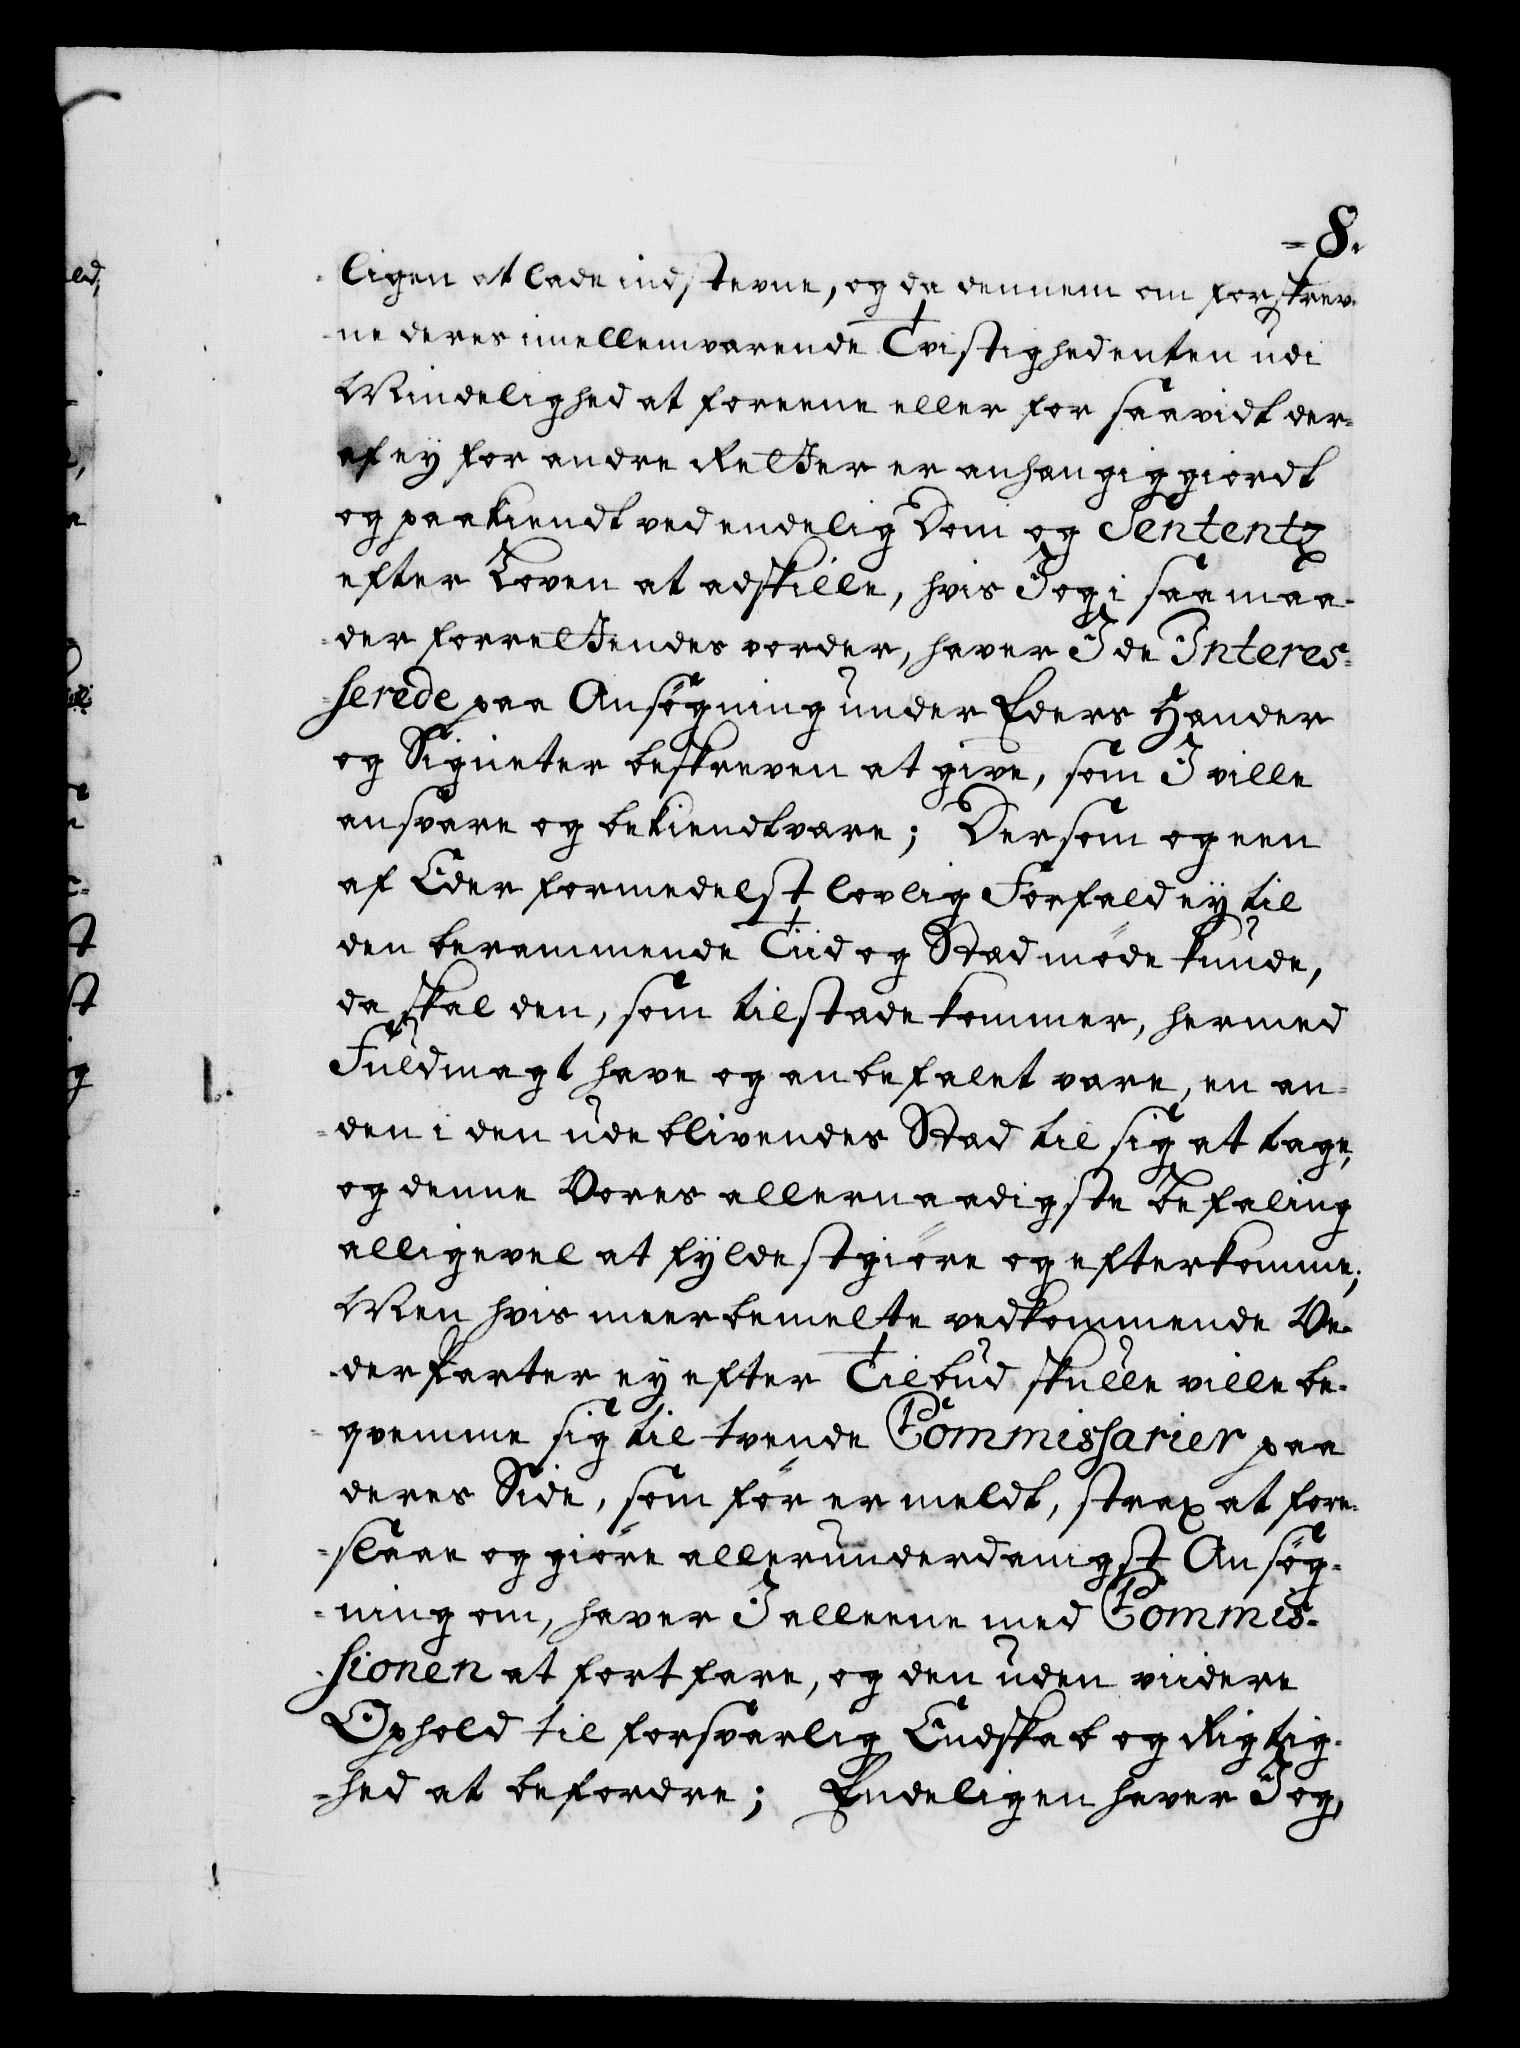 -8.
ligen at lade indstevne, og da dennem om forskrev-
ne deres imellemværende Tvistigheder enten udi
Mindelighed at foreene eller for saavidt der-
af ey for andre Retter er anhængiggiordt
og paakiendt ved endelig Dom og Sententz
efter Loven at adskille, hvis I og i saa maa-
der forrettendes vorder, haver I de Interes-
serede paa Ansøgning under Eders Hænder
og Signeter beskreven at give, som I ville
ansvare og bekiendt være; Dersom og een
af Eder formedelst lovlig Forfald ey til
den berammende Tiid og Stæd møde kunde,
da skal den, som tilstæde kommer, hermed
Fuldmagt have og anbefalet være, en an-
den i den udeblivendes Stæd til sig at tage,
og denne Vores allernaadigste Befaling
alligevel at fyldestgiøre og efterkomme;
Men hvis meerbemelte vedkommende Ve-
derparter ey efter Tilbud skulle ville be-
qvemme sig til tvende Commissarier paa
deres Side, som før er meldt, strax at fore-
slaae og giøre allerunderdanigst Ansøg-
ning om, haver I alleene med Commis-
sionen at fortfare, og den uden viidere
Ophold til forsvarlig Endskab og Rigtig-
hed at befordre; Endeligen haver I og,